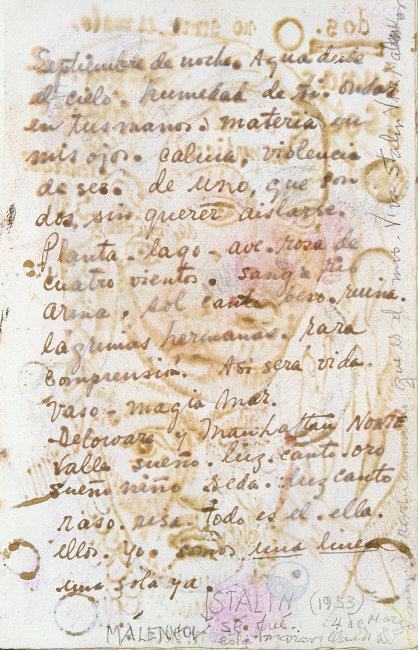 dos. no sirve
Septiembre de noche. Agua desde
el cielo. humedad de ti. ondas
en tus manos. materia en
mis ojos. calma, violencia
de ser. de uno, que son
dos, sin querer aislarse.
Planta. lago. ave. rosa de
cuatro vientos. sangre rio
arina, sol canto beso. ruina.
lagrimas hermanas. rara
comprensión. Asi será vida.
Vaso. magia Mar.
Delaware y Manhattan Norte
Valle sueño. luz. canto. oro
sueño niño seda. luz canto
raso. risa. todo es él. ella.
ellos. yo. somos una linea
una sola ya.
STALIN (1953)
MALENKOV se fue. 4 de Marzo
Viva Stalin Viva Malenkov